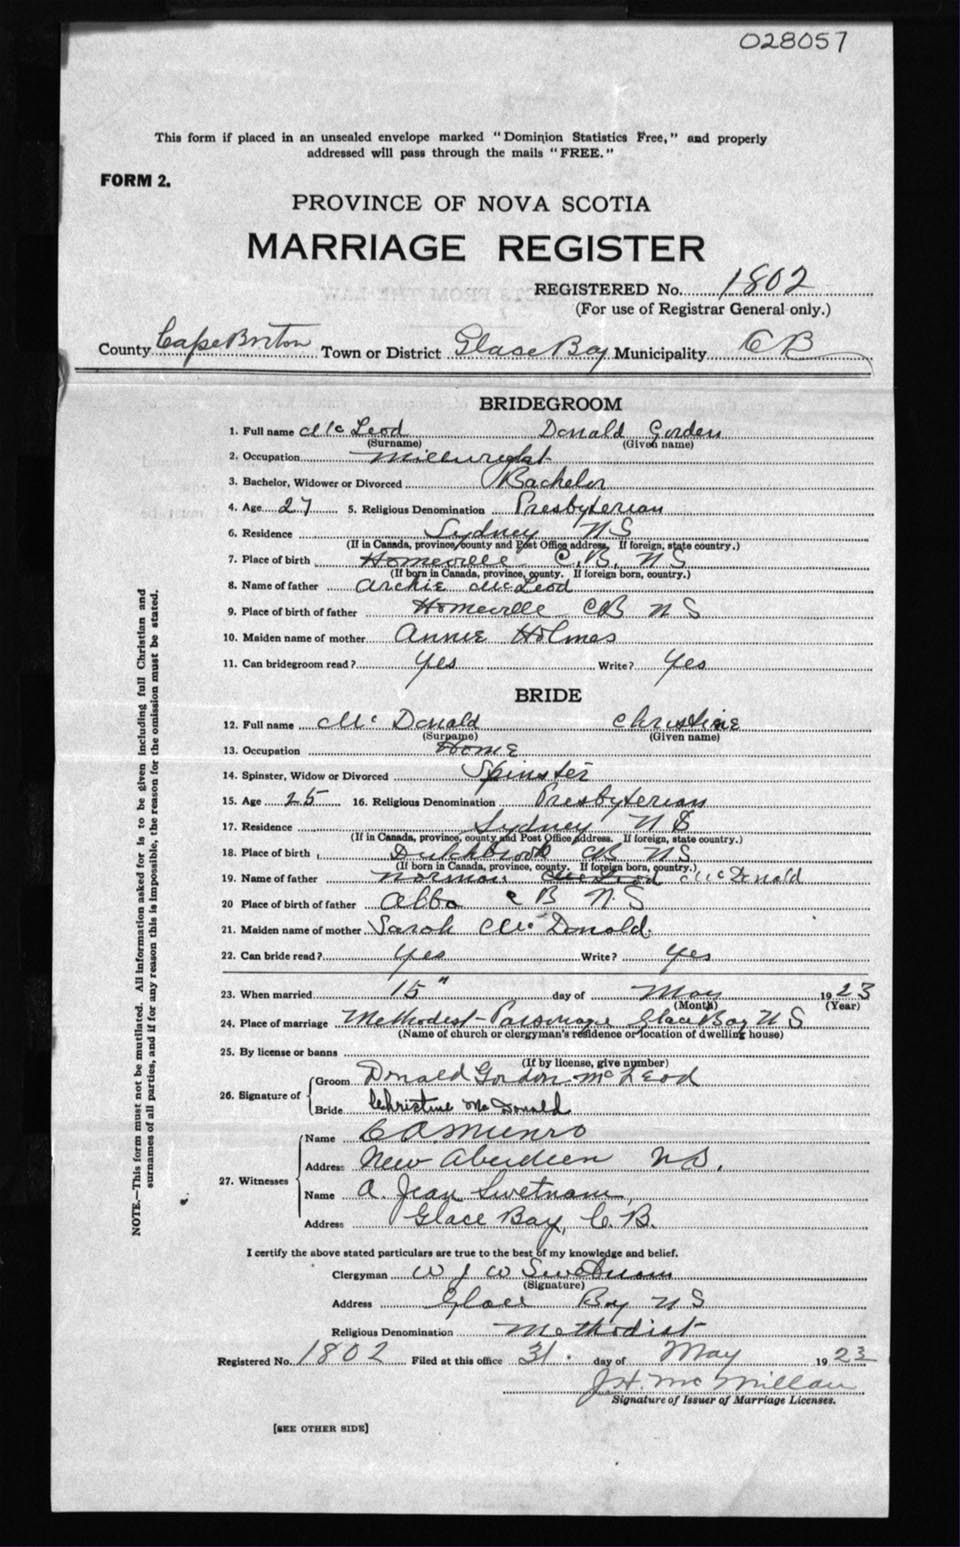 028057
This form if placed in an unsealed envelope marked "Dominion Statistics Free," and properly
addressed will pass through the mails "FREE."
FORM 2.
PROVINCE OF NOVA SCOTIA
MARRIAGE REGISTER
REGISTERED No. 1802
(For use of Registrar General only.)
County Cape Breton Town or District Glace Bay Municipality C B
BRIDEGROOM
1. Full name McLeod Donald Gorden
(Surname) (Given name)
2. Occupation Millwright
3. Bachelor, Widower or Divorced Bachelor
4. Age 27 5. Religious Denomination Presbyterian
6. Residence Sydney N S
(If in Canada, province county and Post Office address. If foreign, state country.)
7. Place of birth Homeville C.B. N S
(If born in Canada, province, county. If foreign born, country.)
8. Name of father Archie McLeod
9. Place of birth of father Homeville CB N S
10. Maiden name of mother Annie Holmes
11. Can bridegroom read? Yes Write? Yes
BRIDE
12. Full name McDonald Christine
(Surname) (Given name)
13. Occupation Home
14. Spinster, Widow or Divorced Spinster
15. Age 25 16. Religious Denomination Presbyterian
17. Residence Sydney N S
(If in Canada, province, county and Post Office address. If foreign, state country.)
18. Place of birth Dutchbrook CB N S
(If born in Canada, province, county. If foreign born, country.)
19. Name of father Norman McLeod McDonald
20 Place of birth of father Alba C B N.S
21. Maiden name of mother Sarah McDonald.
22. Can bride read? Yes Write? Yes
23. When married 15" day of May 1923
(Month) (Year)
24. Place of marriage Methodist-Parsonage Glace Bay N S
(Name of church or clergyman's residence or location of dwelling house)
25. By license or banns
(If by license, give number)
26. Signature of Groom Donald Gordon McLeod
Bride Christine McDonald
27. Witnesses Name C A Munro
Address New Aberdeen N.S.
Name A. Jean Swetnam
Address Glace Bay, C. B.
I certify the above stated particulars are true to the best of my knowledge and belief.
Clergyman W J W Swetnam
(Signature)
Address Glace Bay N S
Religious Denomination Methodist
Registered No. 1802 Filed at this office 31. day of May 1923
J.H. McMillan
Signature of Issuer of Marriage Licenses.
[SEE OTHER SIDE]
NOTE.—This form must not be mutilated. All information asked for is to be given including full Christian and
surnames of all parties, and if for any reason this is impossible, the reason for the omission must be stated.